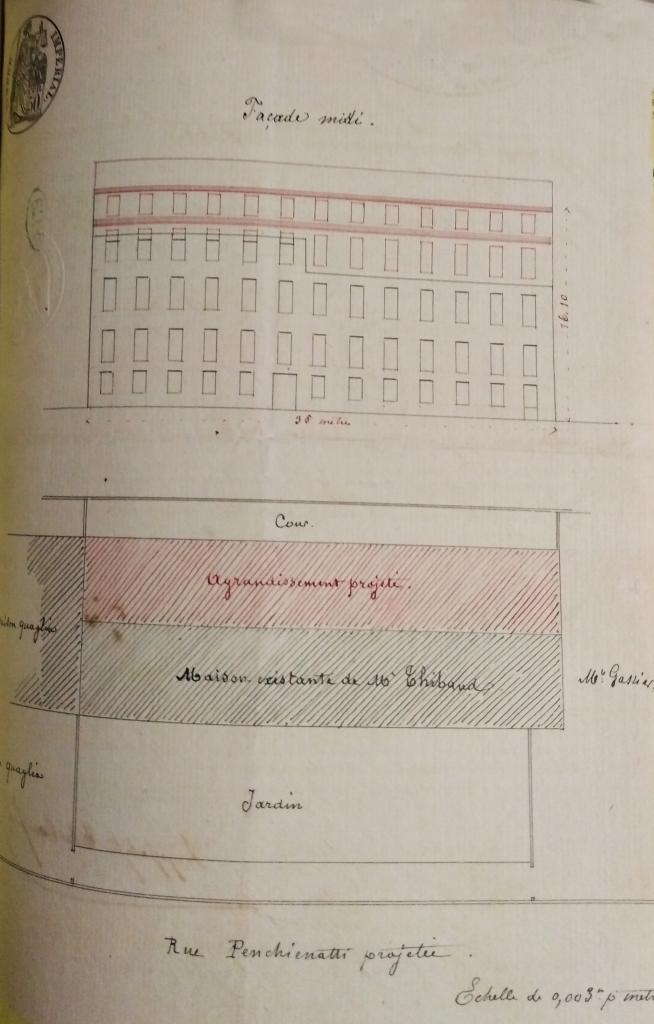 IMPÉRIAL
Façade midi.
16.10
35 mètre
Cour.
Agrandissement projeté.
quaglia
Maison existante de Mr Thibaud
Mr Gassier
quaglia
Jardin
Rue Penchienatti projetée.
Echelle de 0,003m p metr